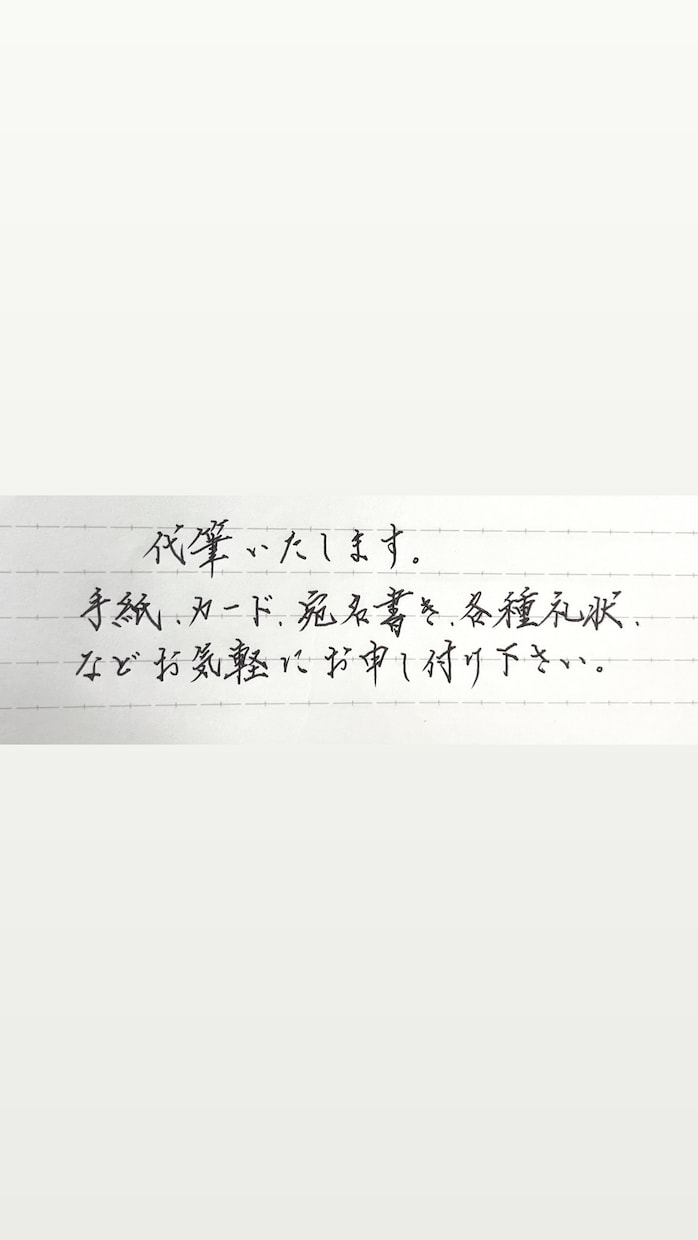 代筆いたします。
手紙、カード、宛名書き、各種礼状、
などお気軽にお申し付け下さい。